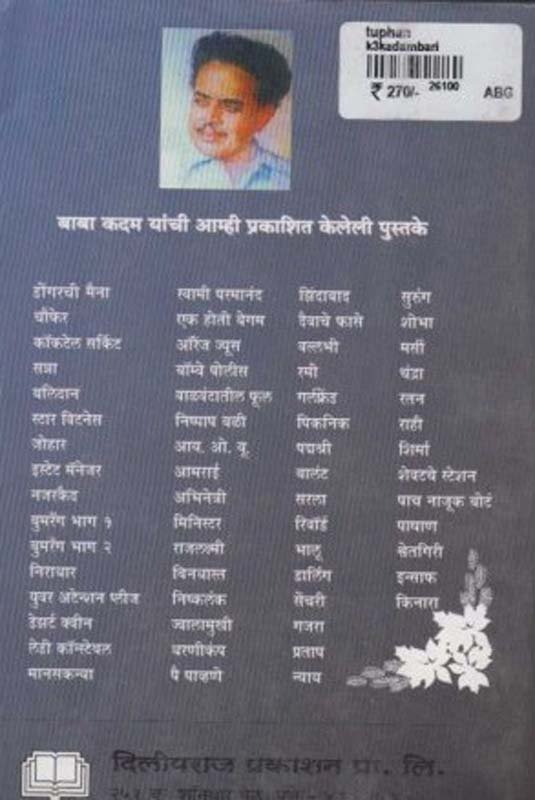 tuphan
k3kadambari
₹ 270/- 26100 ABG
बाबा कदम यांची आम्ही प्रकाशित केलेली पुस्तके
डोंगरची मैना स्वामी परमानंद झिंदाबाद सुरुंग
चौफेर एक होती बेगम दैवाचे फासे शोभा
कॉकटेल सर्किट ऑरेंज ज्यूस वल्लभी मर्सी
सन्ना बॉम्बे पोलीस रमो चंद्रा
बलिदान वाळवंटातील फूल गर्लफ्रेंड रतन
स्टार विटनेस निष्पाप बळी पिकनिक राही
जोहार आय. ओ. यू. पद्मश्री शिर्मा
इस्टेट मॅनेजर आमराई वालंट शेवटचे स्टेशन
नजरकैद अभिनेत्री सरला पाच नाजूक बोटं
बुमरँग भाग १ मिनिस्टर रिवॉर्ड पाषाण
बुमरँग भाग २ राजलक्ष्मी भालू खेतगिरी
निराधार बिनधास्त डार्लिंग इन्साफ
युवर अटेन्शन प्लीज निष्कलंक सेंचरी किनारा
डेझर्ट क्वीन ज्वालामुखी गजरा
लेडी कॉन्स्टेबल धरणीकंप प्रताप
मानसकन्या पै पाव्हणे न्याय
दिलीपराज प्रकाशन प्रा. लि.